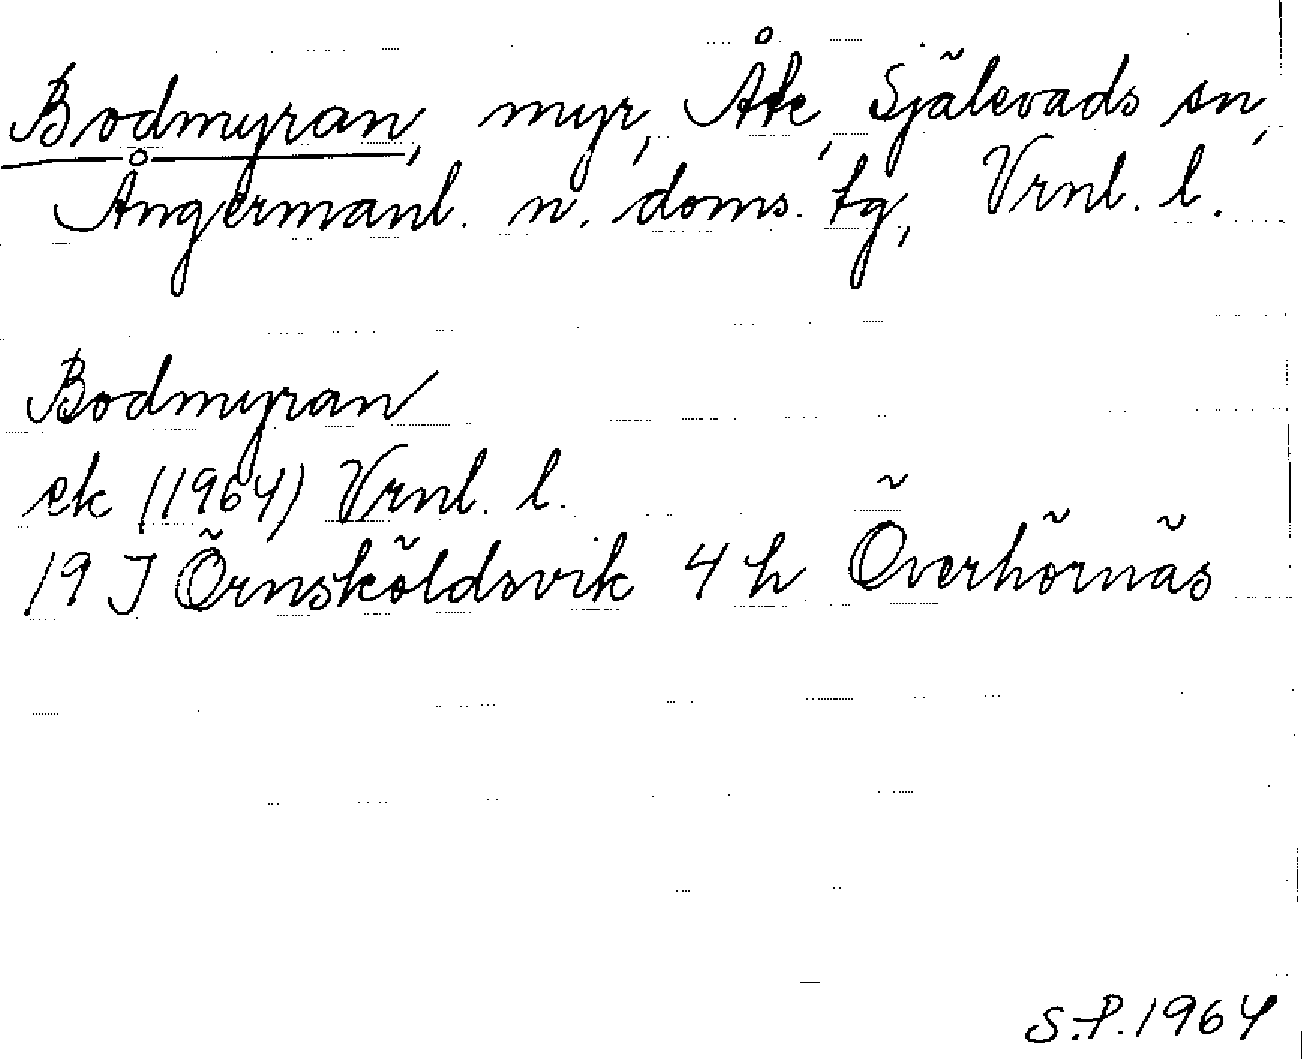 Bodmyran, myr, Åke, Själevads sn,
Ångermanl. n. doms. tg, Vrnl. l.
Bodmyran
ek (1964) Vrnl. l.
19 J Örnsköldsvik 4 h Överhörnäs
S.P. 1964